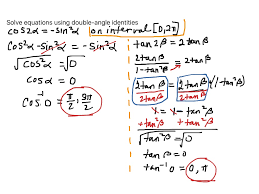 Solve equations using double-angle identities
cos2α = -sin²α on interval [0,2π]
cos²α - sin²α = -sin²α
√cos²α = √0
cos α = 0
cos⁻¹ 0 = π/2, 3π/2
tan2β = 2tanβ
2tanβ / 1-tan²β = 2tanβ
2tanβ / 2tanβ = 2tanβ / 2tanβ (1-tan²β)
1 = 1 - tan²β
+tan²β +tan²β
√tan²β = √0
tan β = 0
tan⁻¹ 0 = 0, π